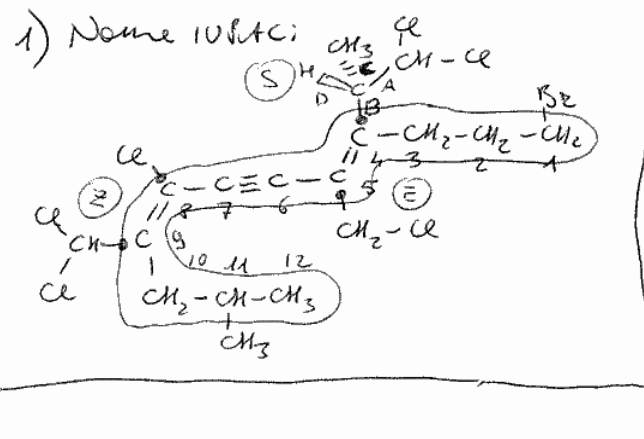 1) Nome IUPAC:
Cl
CH3 CH - Cl
S H C A
D B Br
C - CH2 - CH2 - CH2
Cl 4 3 2 1
C - C ≡ C - C 5 E
Z 8 7 6
Cl CH2 - Cl
CH - C 9
Cl 10 11 12
CH2 - CH - CH3
CH3